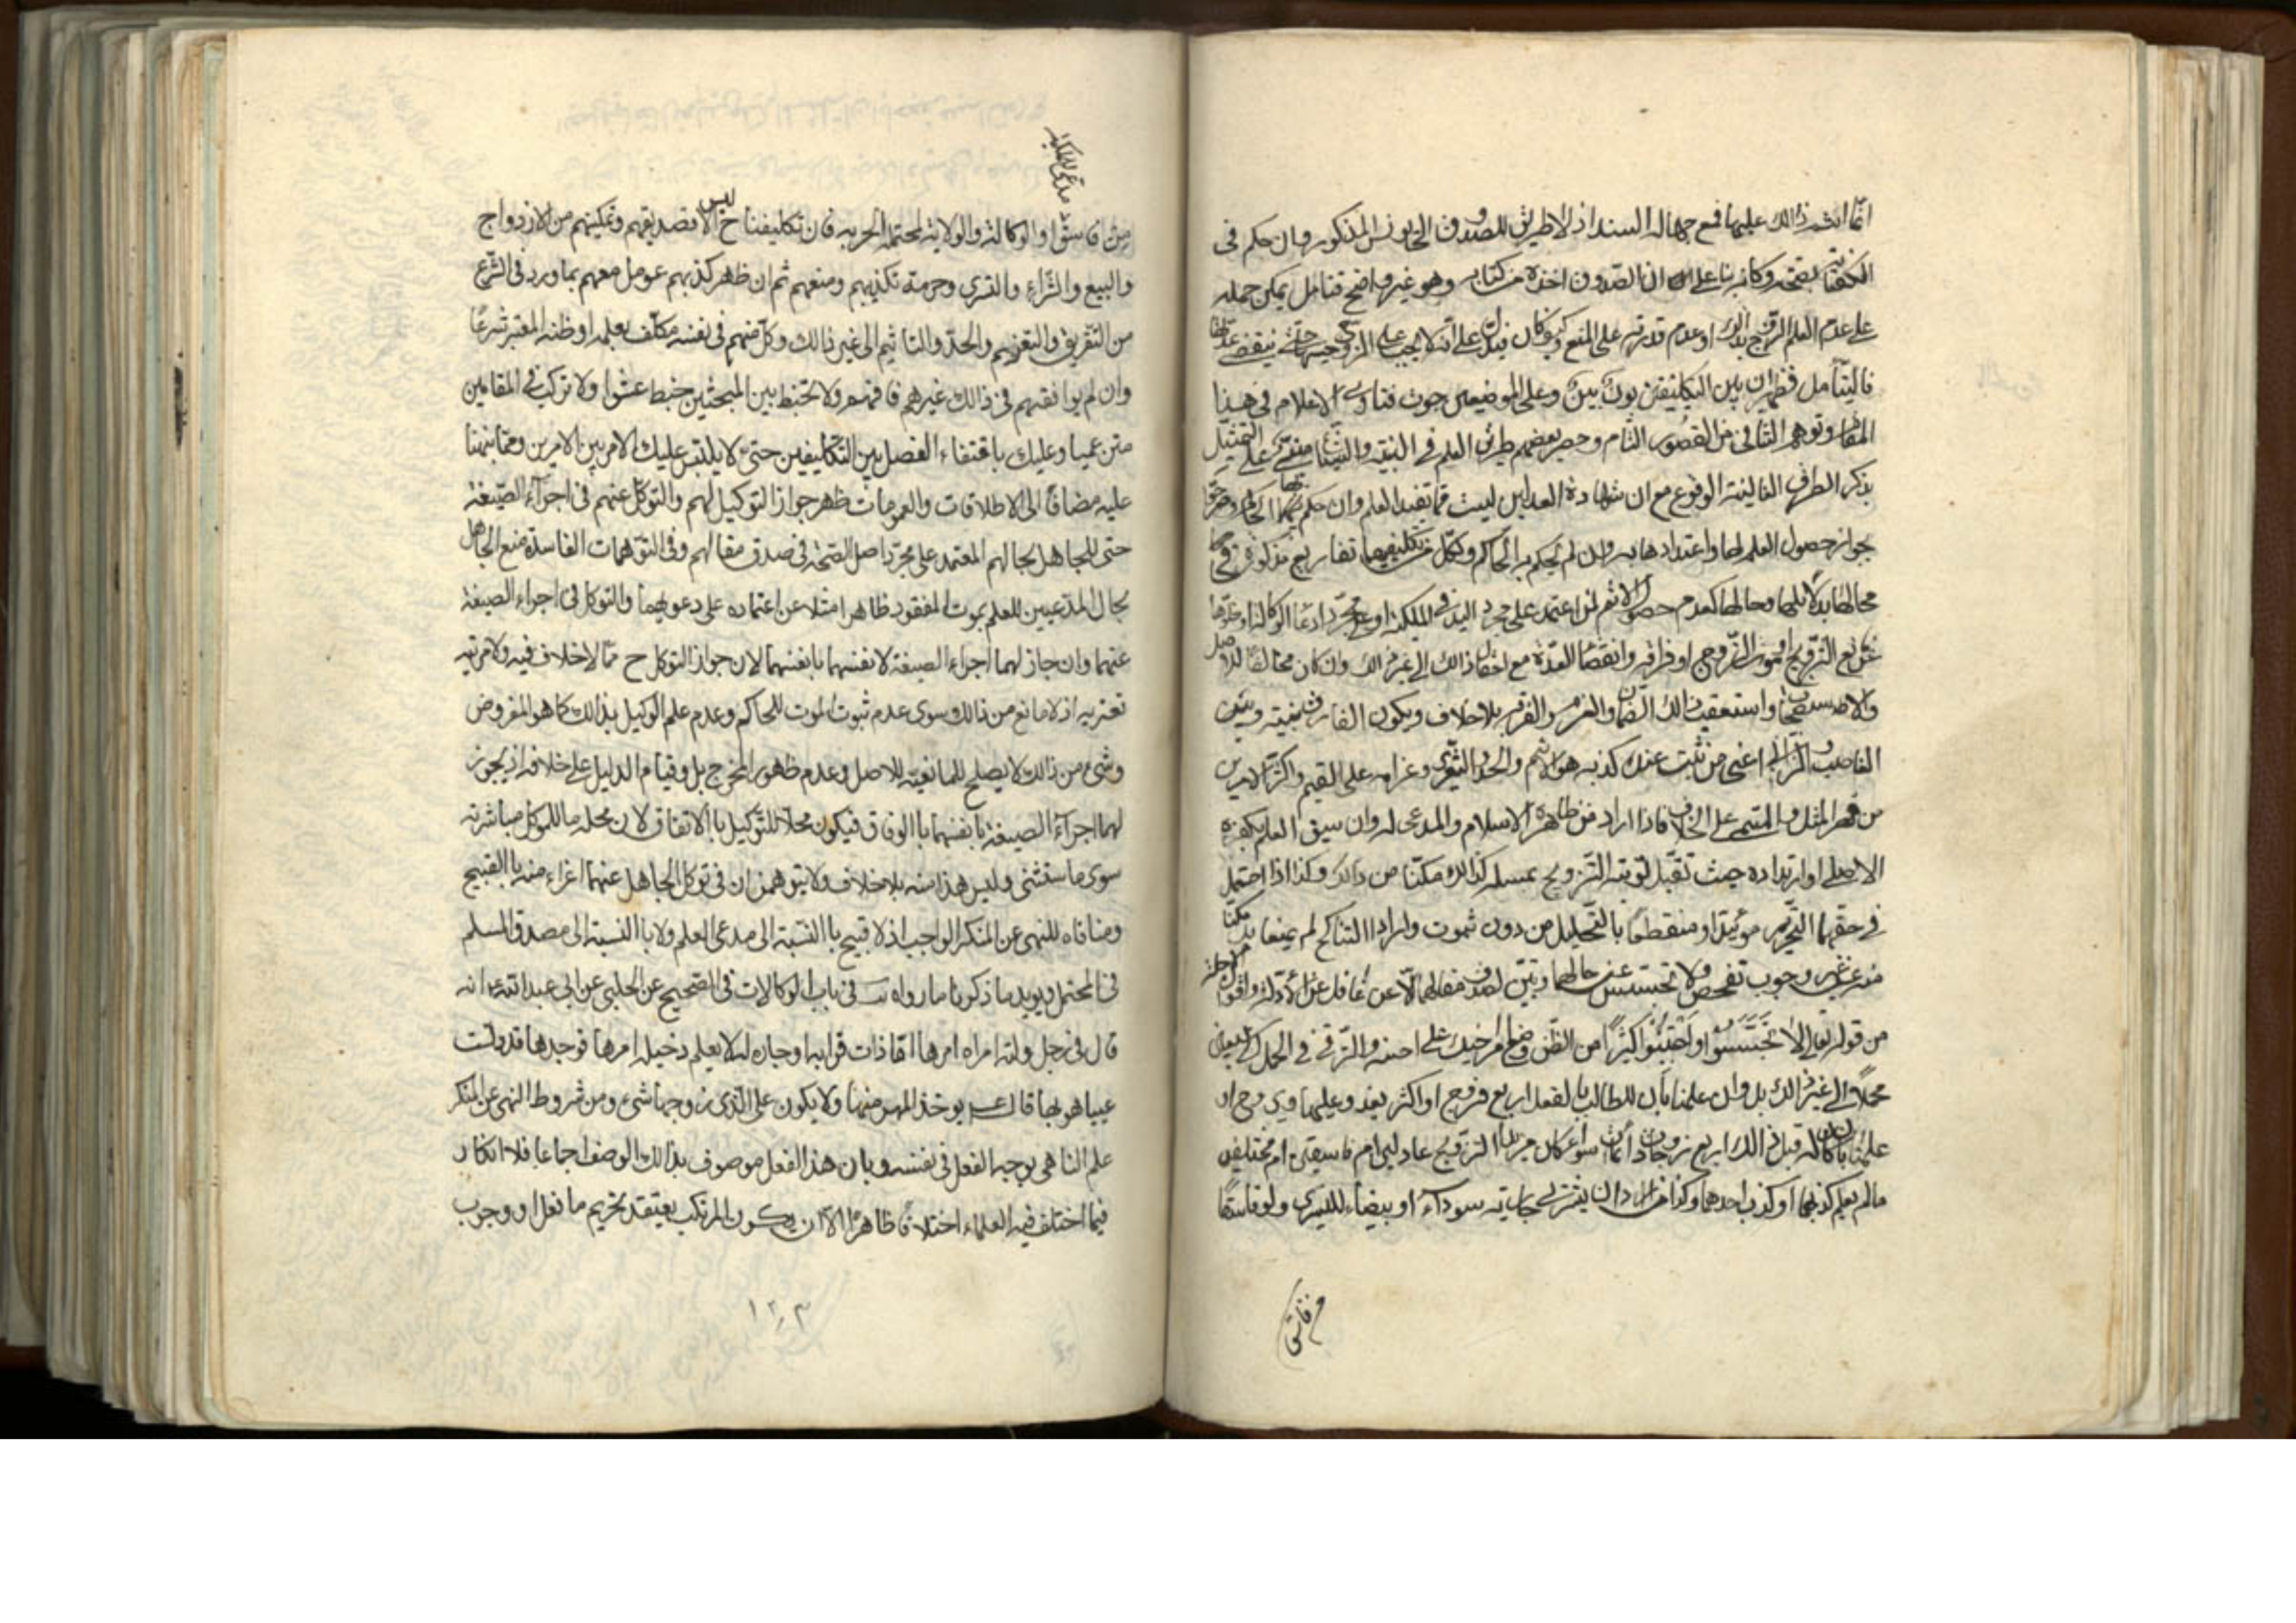 انما اثم ذالك عليها فمع جهالة السند اذ لا طريق للصدوق الى يونس المذكور وان حكم فى
بصحته وكانه بناء على ان الصدوق اخذه من كتابه وهو غير واضح فتامل يمكن حمله
على عدم العلم الزوج بذالك او عدم قدرته على المنع
فاليتامل فظهر ان بين التكليفين بون بين وعلى الموضعين جرت فتاوى الاعلام فى هذا
المقام وتوهم التنافى من القصور التام وحصر بعضهم طريق العلم فى البينة
بذكر الطرق الغالبة الوقوع مع ان شهادة العدلين ليست مما تفيد العلم وان حكم
جواز حصول العلم لها واعتدادها به وان لم يحكم به الحاكم ولكل من تكليفيهما تفاريع مذكورة فى
محالها وحالها كعدم حصول الاثم لمن اعتمد على مجرد اليد فى الملكية او مجرد ادعا الوكالة
التزويج او موت الزوج او فراقه وانقضا العدة مع ذالك الى غير ذالك وان كان مخالفا للاصل
والاستصحاب واستعقب ذالك الضمان والغرم والفرقة بلا خلاف ويكون الفارق بينه وبين
الغاصب والزانى اعنى من ثبت عنده كذبه هو الاثم والحد والتعزير وغرامه على القيم واكثر الامرين
من مهر المثل والمسمى على الخلاف فاذا اراد من ظاهره الاسلام والمدعى له وان سبق العلم بكفره
الاصلى او ارتداده حيث تقبل توبته التزويج بمسلمة كذالك مكنا من ذالك وكذا اذا احتمل
فى حقهما التحريم موبدا او منقطعا بالتحليل من دون ثبوت وارادا التناكح لم يمنعا بل مكنا
منه من غير وجوب تفحص ولا تجسس عن حالهما
من قوله تعالى لا تجسسوا واجتنبوا كثيرا من الظن وضع امر اخيك على احسنه
محملا الى غير ذالك بل وان علمنا بان للطالب بالفعل اربع فزوج او اكثر
علمنا بان كان له قبل ذالك اربع زوجات سواء كان مريدا التزويج عادلين ام فاسقين ام مختلفين
مالم يعلم كذبهما او كذب احدهما وكذا من اراد ان يشترى جارية سوداء او بيضاء للتسرى ولو فاسقا
من فاسق
مدعى للملكية
من فاسق او الوكالة والولاية المحتملة الحرية فان تكليفنا ح ليس الا تصديقهم وتمكينهم من الازدواج
والبيع والشراء والتسرى وحرمة تكذيبهم ومنعهم ثم ان ظهر كذبهم عومل معهم بما ورد فى الشرع
من التفريق والتغريم والحد والتاثيم الى غير ذالك وكل منهم فى نفسه مكلف بعلمه او ظنه المعتبر شرعا
وان لم يوافقهم فى ذالك غيرهم فافهم ولا تخبط بين المبحثين خبط عشوا ولا تركب فى المقامين
متن عميا وعليك باقتفاء الفصل بين التكليفين حتى لا يلتبس عليك الامر بين الامرين ومما نبهنا
عليه مضافا الى الاطلاقات والعمومات ظهر جواز التوكيل لهم والتوكل عنهم فى اجراء الصيغة
حتى للجاهل بحالهم المعتمد على مجرد اصل الصحة فى صدق مقالهم وفى التوهمات الفاسدة منع الجاهل
بحال المدعيين للعلم بموت المفقود ظاهرا مثلا عن اعتماده على دعويهما والتوكل فى اجراء الصيغة
عنهما وان جاز لهما اجراء الصيغة لانفسهما بانفسهما لان جواز التوكل ح مما لا خلاف فيه ولا مرية
تعتريه اذ لا مانع من ذالك سوى عدم ثبوت الموت للحاكم وعدم علم الوكيل بذالك كما هو المفروض
وشىء من ذالك لا يصلح للمانعية للاصل وعدم ظهور المخرج بل وقيام الدليل على خلافه اذ يجوز
لهما اجراء الصيغة بانفسهما باالوفاق فيكون محلا للتوكيل باالاتفاق لان محله ما للموكل مباشرته
سوى ما ستثنى وليس هذا منه بلا خلاف ولا يتوهمن ان فى توكل الجاهل عنهما اغراء منه باالقبيح
ومنافاه للنهى عن المنكر الواجب اذ لا قبيح باالنسبة الى مدعى العلم ولا باالنسبة الى مصدق المسلم
فى المحتمل ويويد ما ذكرنا ما رواه فى باب الوكالات فى الصحيح عن الحلبى عن ابى عبدالله انه
قال فى رجل ولته امراه امرها اما ذات قرابه او جاره له لا يعلم دخيلة امرها فوجدها قد دلست
عيبا هو بها قال يوخذ المهر منها ولا يكون على الذى زوجها شىء ومن شروط النهى عن المنكر
علم الناهى بوجه الفعل فى نفسه وبان هذا الفعل موصوف بذالك الوصف اجماعا فلا انكار
فيما اختلف فيه العلماء اختلافا ظاهرا الا ان يكون المرتكب يعتقد تحريم ما نعل او وجوب